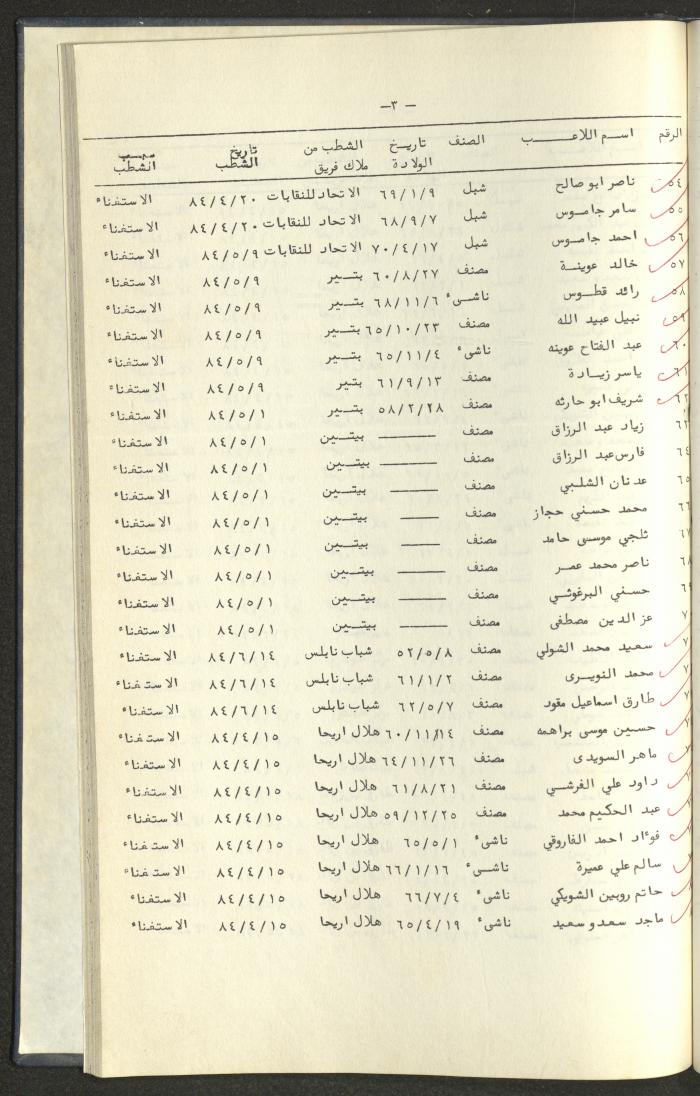 — ٣ —
الرقم اسم اللاعب الصنف تاريخ الولادة الشطب من ملاك فريق تاريخ الشطب سبب الشطب
٥٤ ناصر ابو صالح شبل ٦٩/١/٩ الاتحاد للنقابات ٨٤/٤/٢٠ الاستغناء
٥٥ سامر جاموس شبل ٦٨/٩/٧ الاتحاد للنقابات ٨٤/٤/٢٠ الاستغناء
٥٦ احمد جاموس شبل ٧٠/٤/١٧ الاتحاد للنقابات ٨٤/٥/٩ الاستغناء
٥٧ خالد عوينة مصنف ٦٠/٨/٢٧ بتير ٨٤/٥/٩ الاستغناء
٥٨ رائد قطوس ناشىء ٦٨/١١/٦ بتير ٨٤/٥/٩ الاستغناء
٥٩ نبيل عبيد الله مصنف ٦٥/١٠/٢٣ بتير ٨٤/٥/٩ الاستغناء
٦٠ عبد الفتاح عوينه ناشىء ٦٥/١١/٤ بتير ٨٤/٥/٩ الاستغناء
٦١ ياسر زيادة مصنف ٦١/٩/١٣ بتير ٨٤/٥/٩ الاستغناء
٦٢ شريف ابو حارثه مصنف ٥٨/٢/٢٨ بتير ٨٤/٥/١ الاستغناء
٦٣ زياد عبد الرزاق مصنف ——— بيتين ٨٤/٥/١ الاستغناء
٦٤ فارس عبد الرزاق مصنف ——— بيتين ٨٤/٥/١ الاستغناء
٦٥ عدنان الشلبي مصنف ——— بيتين ٨٤/٥/١ الاستغناء
٦٦ محمد حسني حجاز مصنف ——— بيتين ٨٤/٥/١ الاستغناء
٦٧ ثلجي موسى حامد مصنف ——— بيتين ٨٤/٥/١ الاستغناء
٦٨ ناصر محمد عمر مصنف ——— بيتين ٨٤/٥/١ الاستغناء
٦٩ حسني البرغوثي مصنف ——— بيتين ٨٤/٥/١ الاستغناء
٧ عز الدين مصطفى مصنف ——— بيتين ٨٤/٥/١ الاستغناء
٧ سعيد محمد الشولي مصنف ٥٢/٥/٨ شباب نابلس ٨٤/٦/١٤ الاستغناء
٧ محمد النويرى مصنف ٦١/١/٢ شباب نابلس ٨٤/٦/١٤ الاستغناء
٧ طارق اسماعيل مقود مصنف ٦٢/٥/٧ شباب نابلس ٨٤/٦/١٤ الاستغناء
٧ حسين موسى براهمه مصنف ٦٠/١١/١٤ هلال اريحا ٨٤/٤/١٥ الاستغناء
٧ ماهر السويدى مصنف ٦٤/١١/٢٦ هلال اريحا ٨٤/٤/١٥ الاستغناء
داود علي الغرشي مصنف ٦١/٨/٢١ هلال اريحا ٨٤/٤/١٥ الاستغناء
عبد الحكيم محمد مصنف ٥٩/١٢/٢٥ هلال اريحا ٨٤/٤/١٥ الاستغناء
فوءاد احمد الفاروقي ناشىء ٦٥/٥/١ هلال اريحا ٨٤/٤/١٥ الاستغناء
سالم علي عميرة ناشىء ٦٦/١/١٦ هلال اريحا ٨٤/٤/١٥ الاستغناء
حاتم روبين الشويكي ناشىء ٦٦/٧/٤ هلال اريحا ٨٤/٤/١٥ الاستغناء
ماجد سعدو سعيد ناشىء ٦٥/٤/١٩ هلال اريحا ٨٤/٤/١٥ الاستغناء